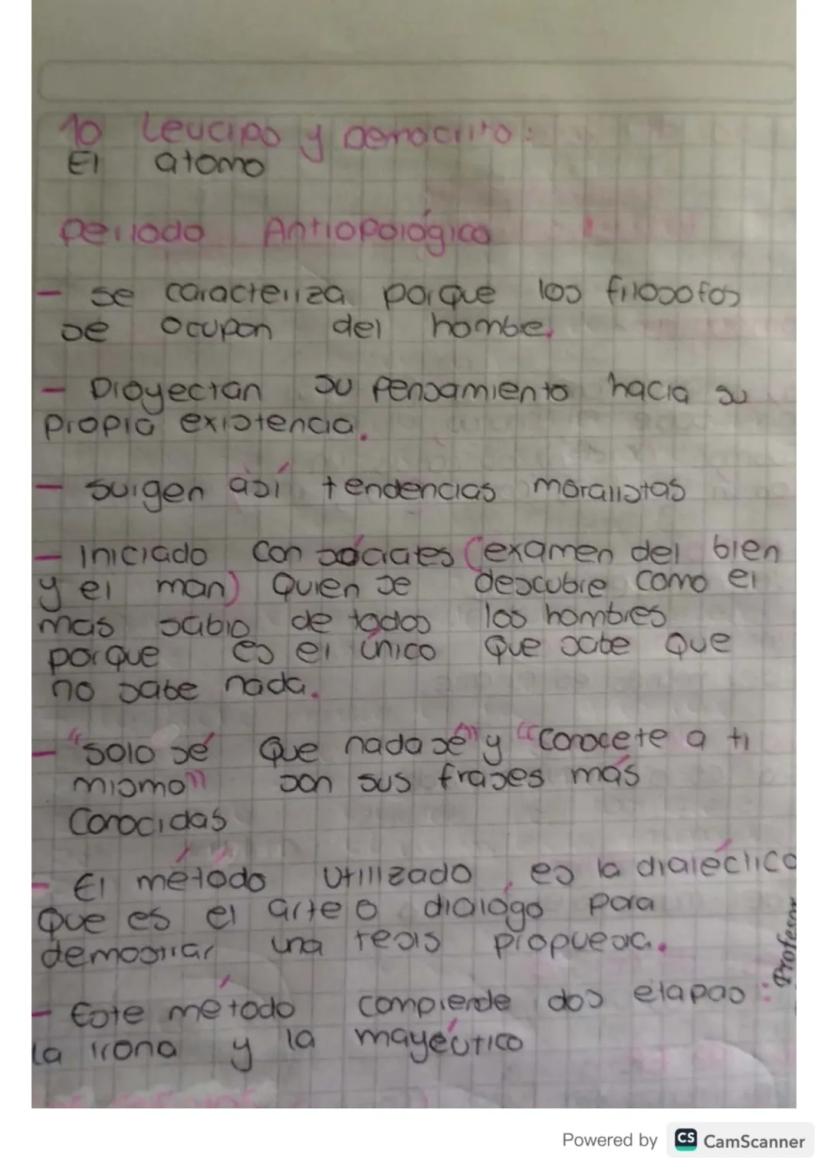 10 Leucipo y Democrito:
El atomo
Periodo Antropológico
- se caracteriza porque los filosofos
se ocupan del hombre.
- Proyectan su pensamiento hacia su
propia existencia.
- surgen así tendencias moralistas
- Iniciado con sócrates (examen del bien
y el man) Quien se descubre como el
mas sabio de todos los hombres
porque es el único que sabe que
no sabe nada.
- "solo sé que nada sé" y "conocete a ti
mismo" son sus frases más
conocidas
- El método utilizado, es la dialéctica
que es el arte o dialógo para
demostrar una tesis propuesta.
- Este método comprende dos etapas:
la irona y la mayéutico
Profesor
Powered by CS CamScanner